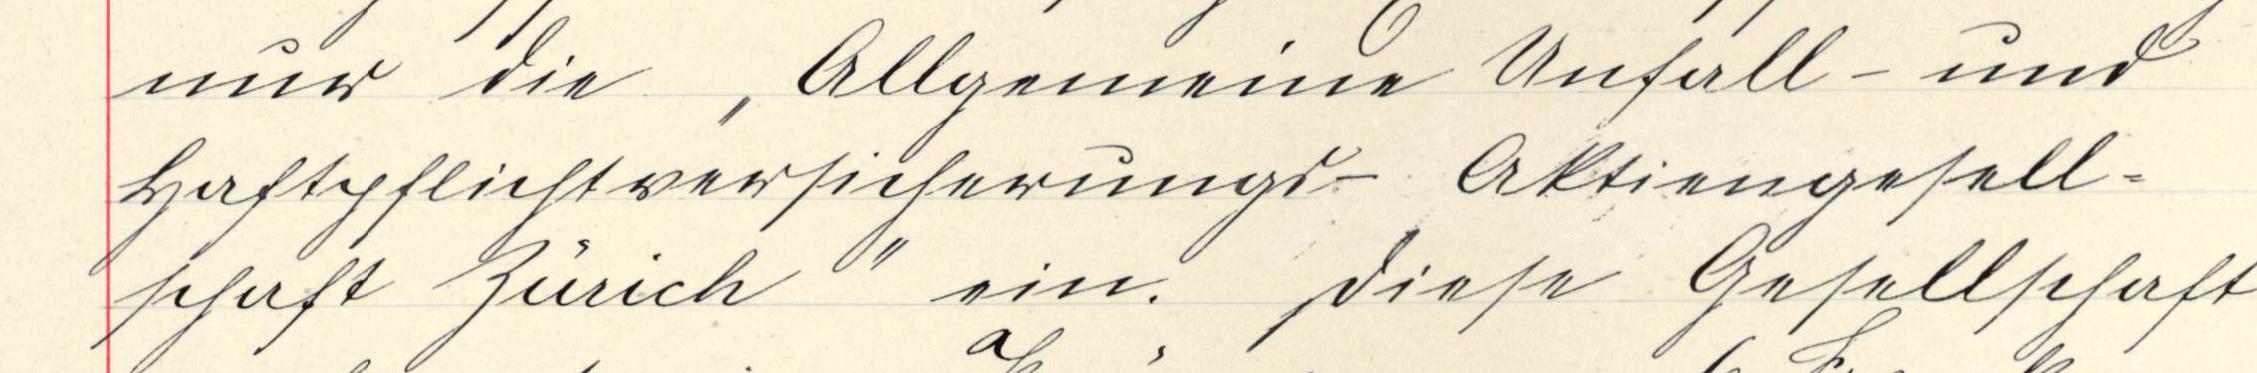 nur die „Allgemeine Unfall- und
Haftpflichtversicherungs- Aktiengesell-
schaft Zürich" ein. Diese Gesellschaft